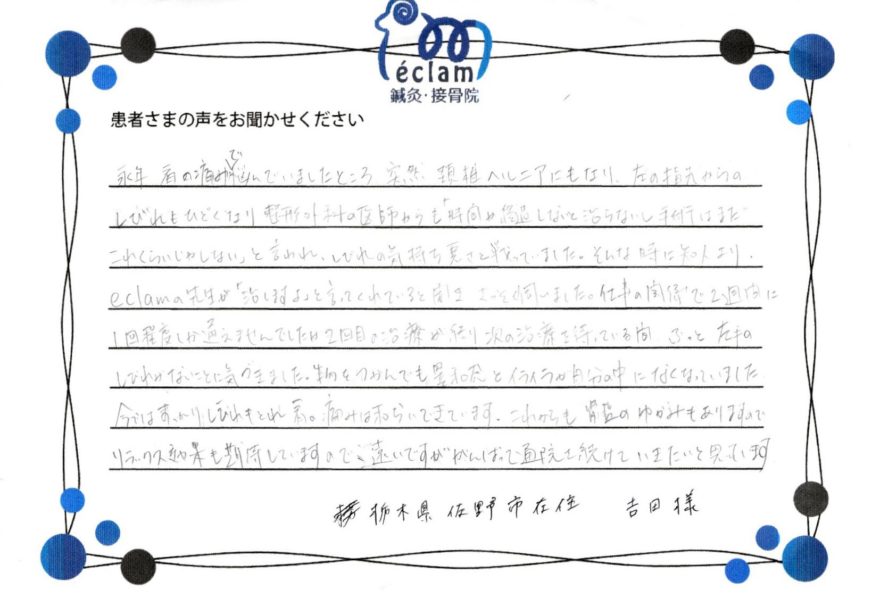 éclam
鍼灸・接骨院
患者さまの声をお聞かせください
永年 肩の痛みで悩んでいましたところ 突然 頚椎ヘルニアにもなり、左の指先からの
しびれもひどくなり 整形外科の医師からも「時間が経過しないと治らないし手術はまだ
これくらいじゃしない」と言われ、しびれの気持ち悪さと戦っていました。そんな時に知人より、
eclamの先生が「治しますよ」と言ってくれていると聞き さっそく伺いました。仕事の関係で2週間に
1回程度しか通えませんでしたが2回目の治療が終り次の治療を待っている間 ふっと 左手の
しびれがないことに気づきました。物をつかんでも違和感とイライラが自分の中になくなっていました
今ではすっかりしびれもとれ 肩の痛みは和らいできています。これからも 骨盤のゆがみもありますので
リラックス効果も期待していますので、遠いですががんばって通院を続けていきたいと思います
栃木県佐野市在住 吉田様